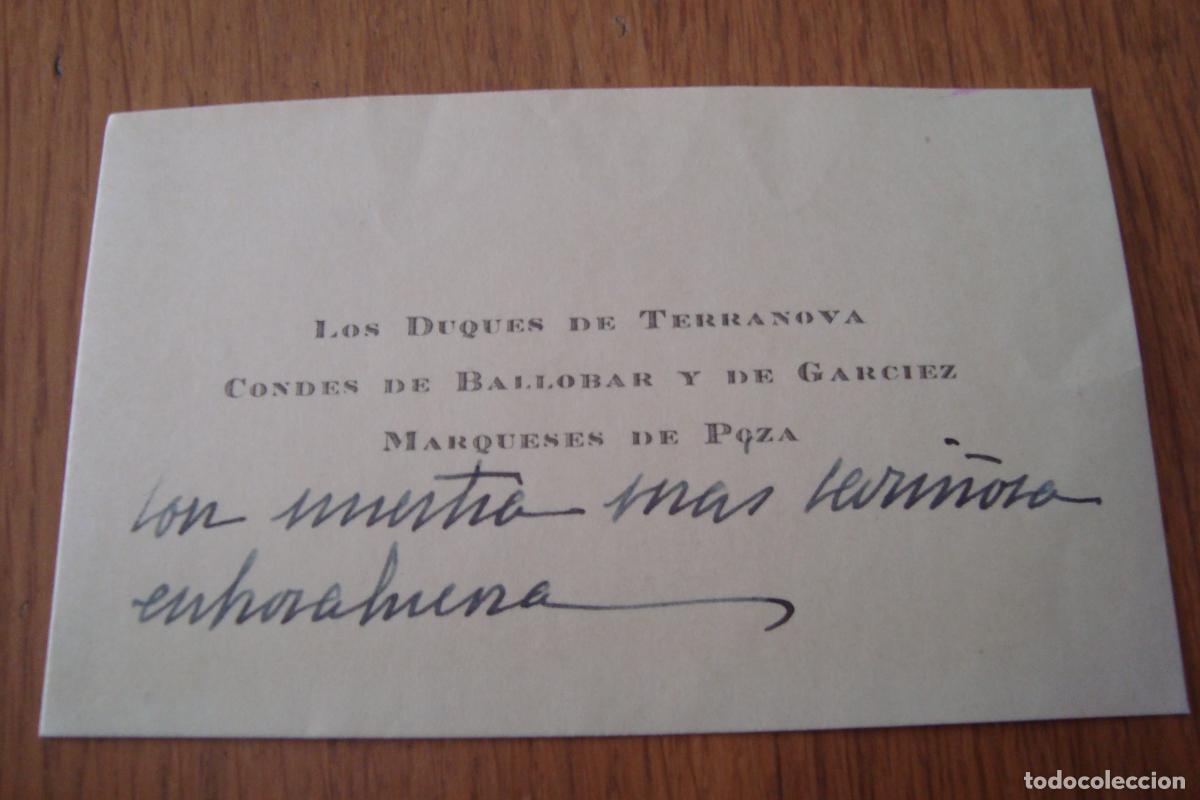 Los Duques de Terranova
Condes de Ballobar y de Garciez
Marqueses de Poza
con nuestra mas cariñosa
enhorabuena
todocoleccion